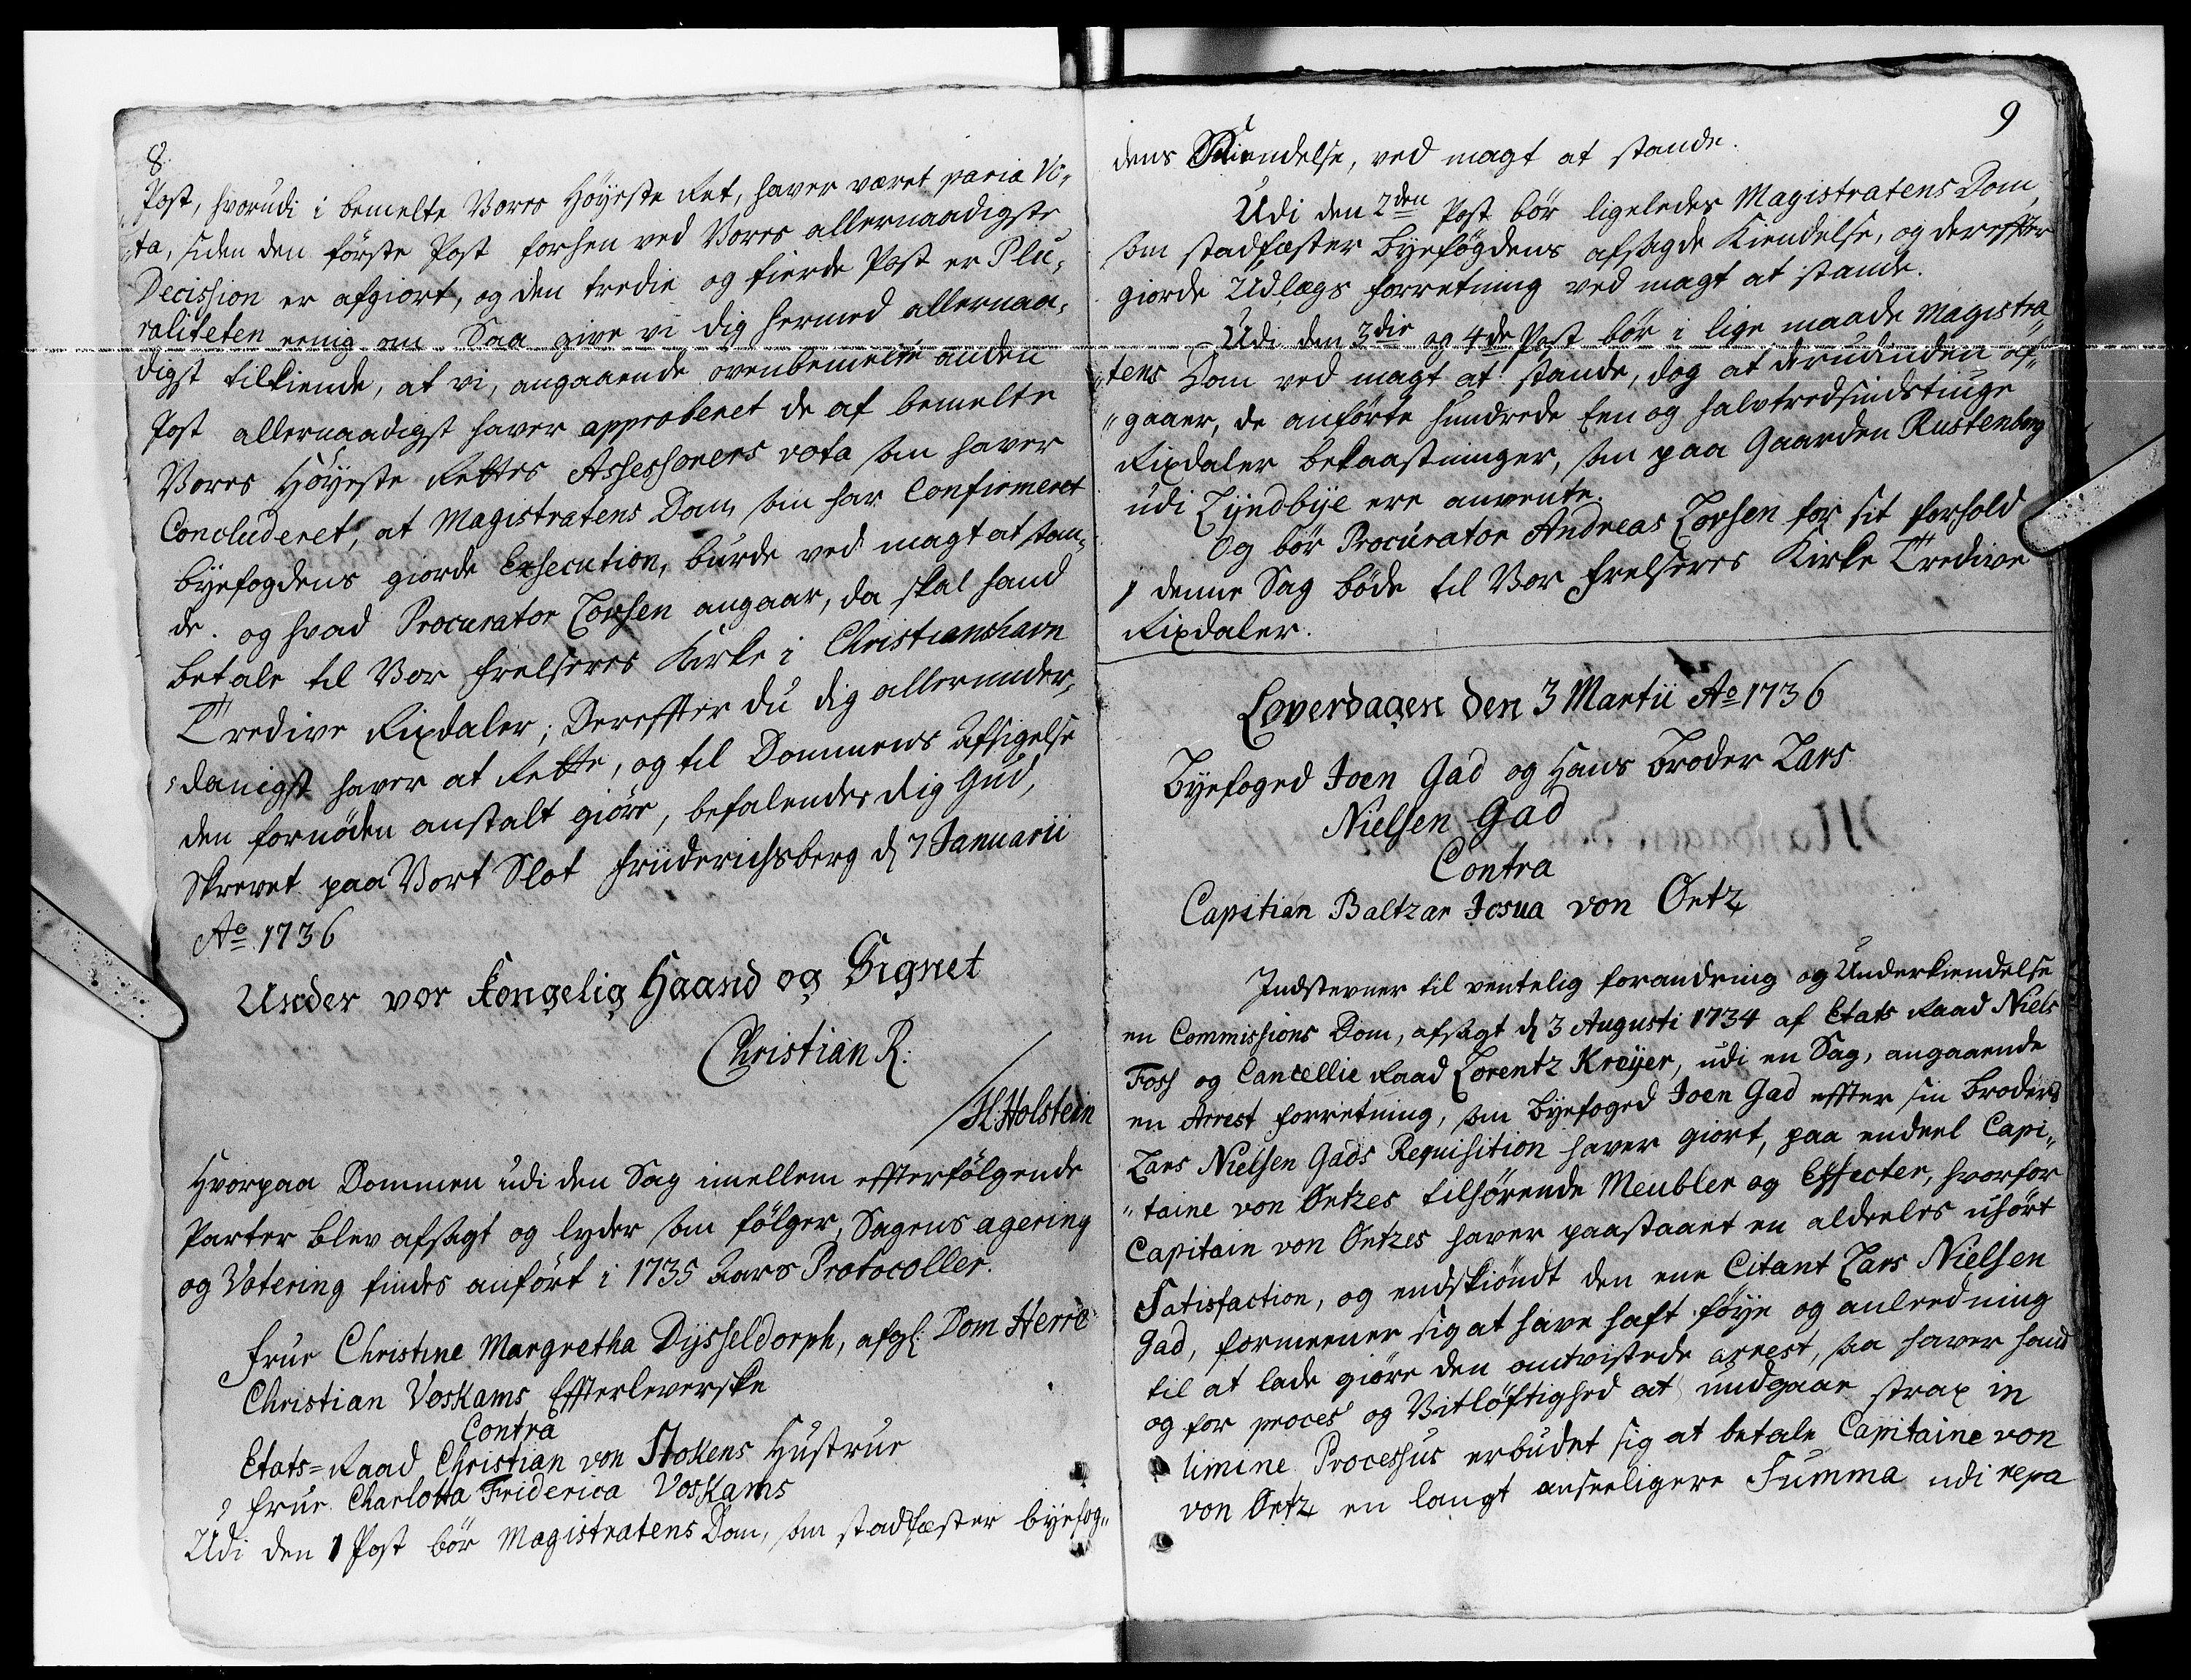 8.
Post, hvorudi i bemelte Vores Høyeste Ret, haver været paria Vo„
„ta, siden den første Post forhen ved Vores allernaadigste
Decission er afgiort, og den tredie og fierde Post er Plu„
raliteten eenig om. Saa give vi dig hermed allernaa„
digst tilkiende, at vi, angaaende ovenbemelte anden
Post allernaadigst haver approberet de af bemelte
Vores Høyeste Rettes Assessorers vota som haver
Concluderet, at Magistratens Dom, som har Confirmeret
byefogdens giorde Execution, burde ved magt at stan„
de. og hvad Procurator Lovsen angaar, da skal hand
betale til Vor Frelseres Kirke i Christianshavn
Tredive Rixdaler; Derefter du dig allerunder„
„danigst haver at Rette, og til Dommens Afsigelse
den fornøden anstalt giøre, befalendes dig Gud,
Skrevet paa Vort Slot Friderichsberg d 7 Januarii
Ao 1736
Under vor Kongelig Haand og Signet
Christian R:
/ H: Holstein
Hvorpaa Dommen udi den Sag imellem effterfølgende
Parter blev afsagt og lyder som følger, Sagens agering
og Votering findes anført i 1735 Aars Protocoller.
Frue Christine Margretha Dysseldorph, afgl: Dom Herre
Christian Voskams Effterleverske
Contra
Etats=Raad Christian von Stokens Hustrue
Frue Charlotta Friderica Voskams
Udi den 1 Post bør Magistratens Dom, som stadfæster byefog„
9
dens Kiendelse, ved magt at stande.
Udi den 2den Post bør ligeledes Magistratens Dom,
som stadfæster byefogdens afsagde Kiendelse, og dereffter
giorde Udlægs forretning ved magt at stande.
Udi den 3die og 4de Post bør i lige maade Magistra
„tens Dom ved magt at stande, dog at derudinden af„
„gaaer, de anførte hundrede Een og halvtredsindstiuge
Rixdaler bekaastninger, som paa Gaarden Rustenborg
udi Lyndbye ere anvente.
Og bør Procurator Andreas Lovsen for sit forhold
i denne Sag bøde til Vor Frelseres Kirke Tredive
Rixdaler.
Løverdagen den 3 Martii Ao 1736
Byefoged Joen Gad og Hans Broder Lars
Nielsen Gad
Contra
Capitian Baltzar Josua von Oetz
Indstevner til ventelig forandring og Underkiendelse
en Commissions Dom, afsagt d 3 Augusti 1734 af Etats Raad Niels
Foss og Cancellie Raad Lorentz Kreyer, udi en Sag, angaaende
en Arrest forretning, som byefoged Joen Gad effter sin Broders
Lars Nielsen Gads Requisition haver giort, paa endeel Capi„
„taine von Oetzes tilhørende Meubler og Effecter, hvorfor
Capitain von Oetzes haver paastaaet en aldeeles uhørt
Satisfaction, og endskiøndt den ene Citant Lars Nielsen
Gad, formeener sig at have haft føye og anleedning
til at lade giøre den omtvistede arrest, saa haver hand
og for proces og Vitløftighed at undgaae strax in
limine Processus erbudet sig at betale Capitaine von
von Oetz en langt anseeligere Summa udi repa